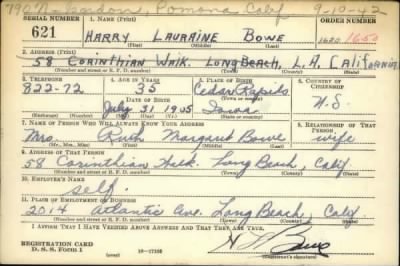 Pomona, Calif 9-10-42
SERIAL NUMBER 1. NAME (Print) ORDER NUMBER
621 HARRY LAURAINE BOWE 1650
(First) (Middle) (Last)
2. ADDRESS (Print)
58 CORINTHIAN WALK. LONG BEACH, L.A. CALIFORNIA
(Number and street or R. F. D. number) (Town) (County) (State)
3. TELEPHONE 4. AGE IN YEARS 5. PLACE OF BIRTH 6. COUNTRY OF CITIZENSHIP
822-72 35 Cedar Rapids
DATE OF BIRTH (Town or county)
July 31 1905 Iowa U.S.
(Mo.) (Day) (Yr.) (State or country)
7. NAME OF PERSON WHO WILL ALWAYS KNOW YOUR ADDRESS 8. RELATIONSHIP OF THAT PERSON
Mrs. Ruth Margaret Bowe wife
(Mr., Mrs., Miss) (First) (Middle) (Last)
9. ADDRESS OF THAT PERSON
58 Corinthian Walk. Long Beach, Calif
(Number and street or R. F. D. number) (Town) (County) (State)
10. EMPLOYER'S NAME
Self.
11. PLACE OF EMPLOYMENT OR BUSINESS
2014 Atlantic Ave. Long Beach, Calif
(Number and street or R. F. D. number) (Town) (County) (State)
I AFFIRM THAT I HAVE VERIFIED ABOVE ANSWERS AND THAT THEY ARE TRUE.
REGISTRATION CARD
D. S. S. Form 1 16-17105 H L Bowe